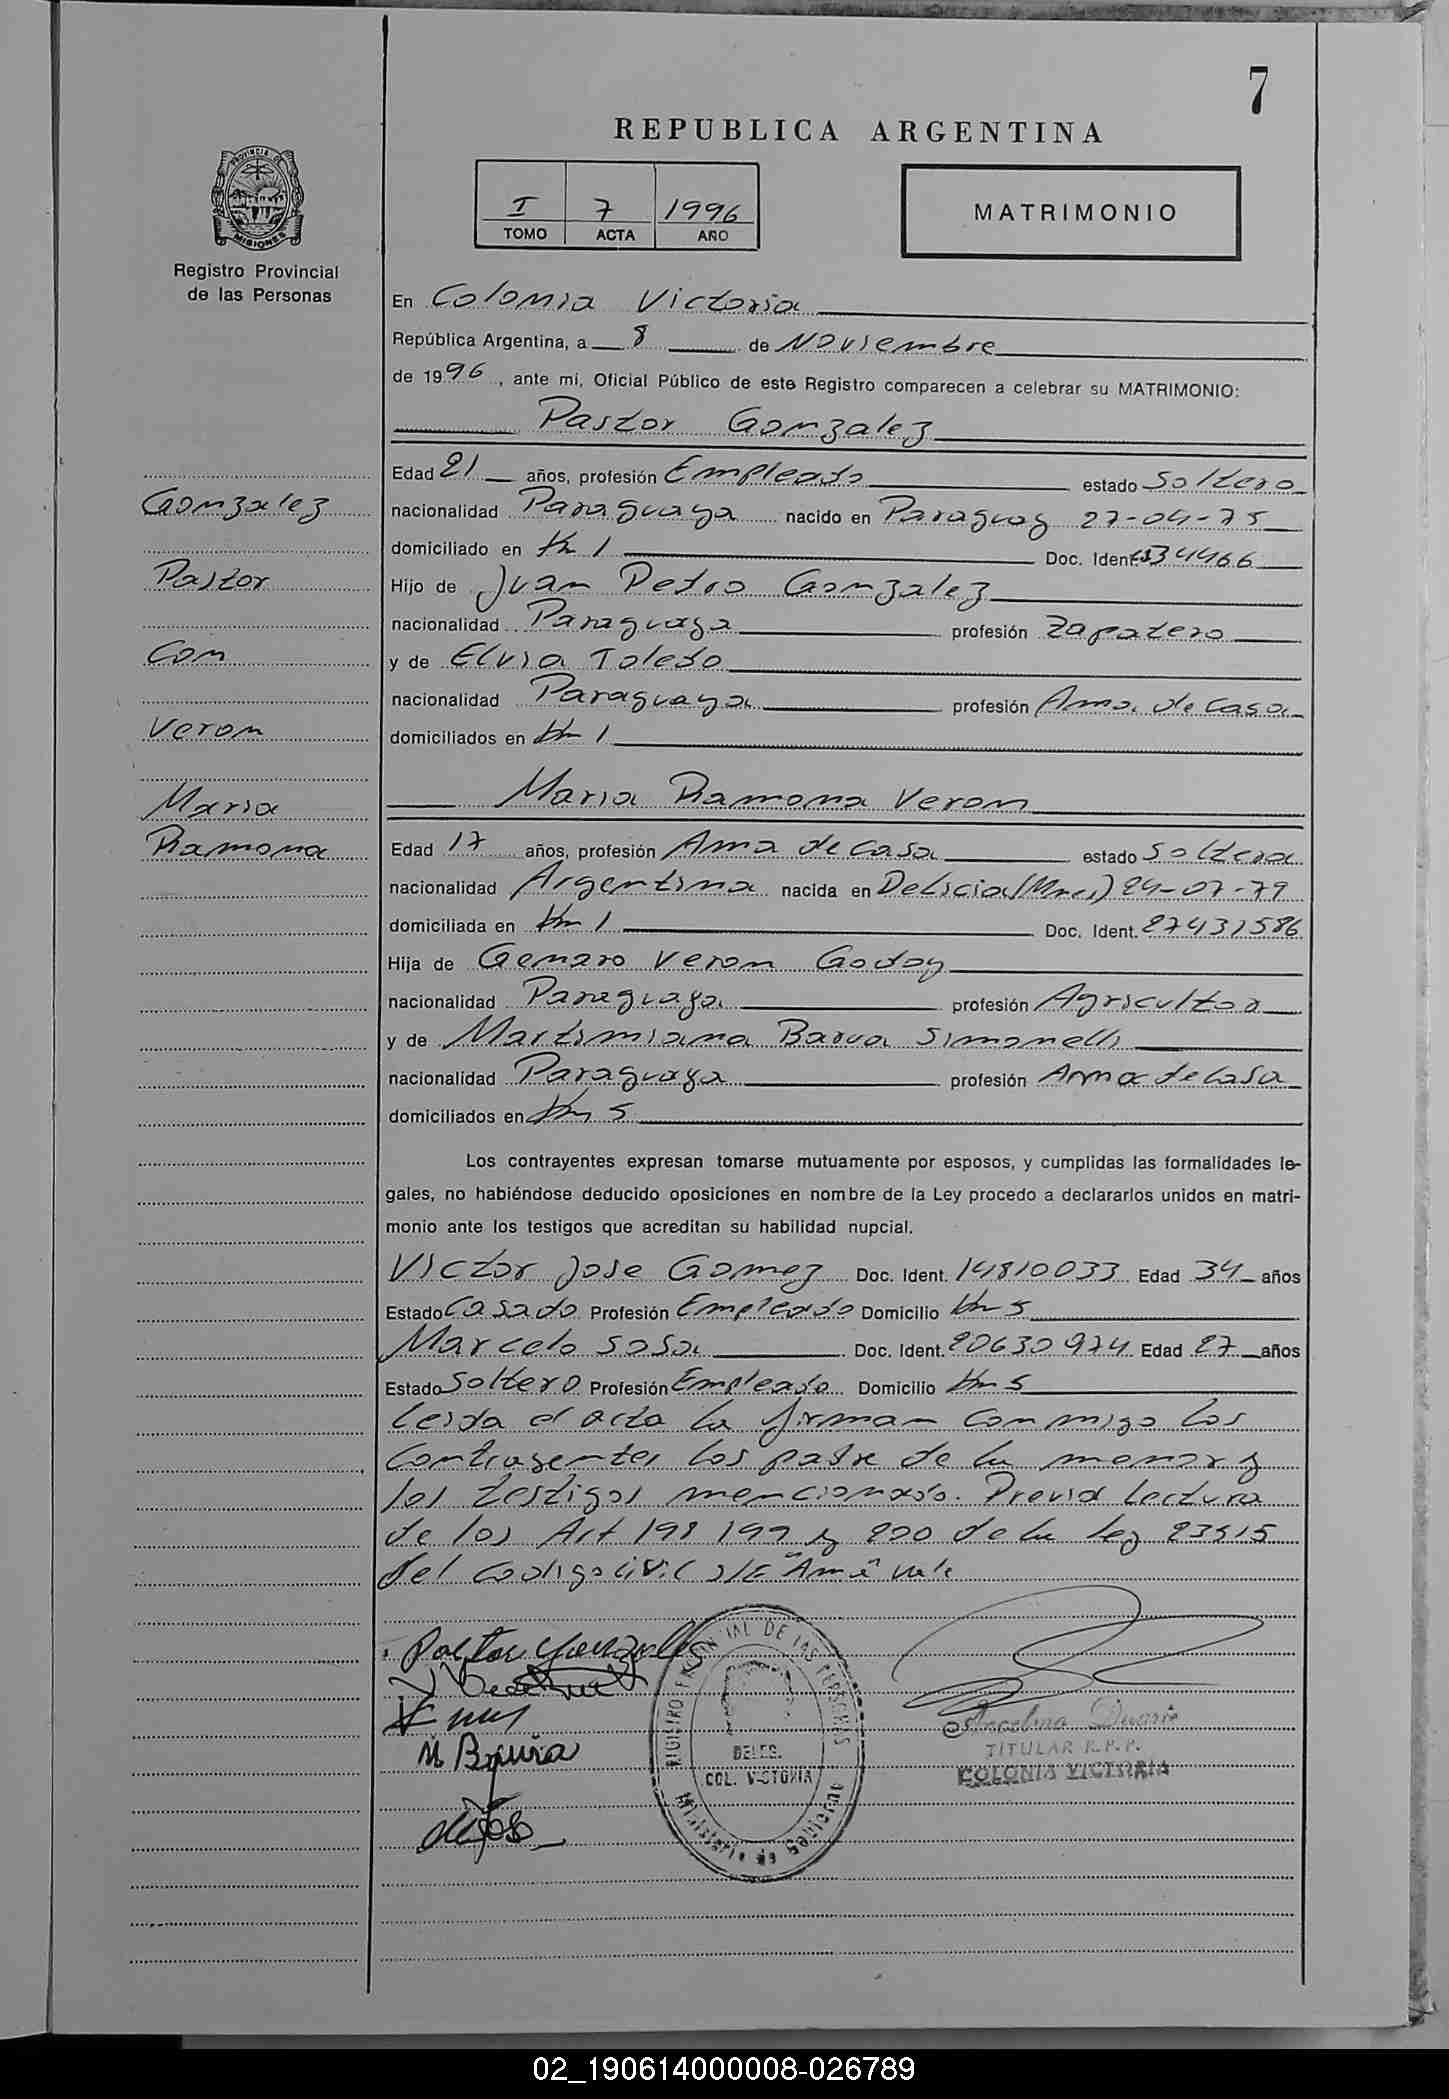 7
REPUBLICA ARGENTINA
PROVINCIA DE
MISIONES
Registro Provincial
de las Personas
I 7 1996
TOMO ACTA AÑO
MATRIMONIO
En Colonia Victoria
República Argentina, a 8 de Noviembre
de 1996, ante mi, Oficial Público de este Registro comparecen a celebrar su MATRIMONIO:
Pastor Gonzalez
Gonzalez
Pastor
Con
Veron
Maria
Ramona
Edad 21 años, profesión Empleado estado Soltero
nacionalidad Paraguaya nacido en Paraguay 27-04-75
domiciliado en Km 1 Doc. Ident.
Hijo de Juan Pedro Gonzalez
nacionalidad Paraguaya profesión Zapatero
y de Elvia Toledo
nacionalidad Paraguaya profesión Ama de Casa
domiciliados en Km 1
Maria Ramona Veron
Edad 17 años, profesión Ama de Casa estado Soltera
nacionalidad Argentina nacida en Delicia (Mnes) 24-07-79
domiciliada en Km 1 Doc. Ident. 27431586
Hija de Genaro Veron Godoy
nacionalidad Paraguaya profesión Agricultor
y de Martimiana Barua Simonelli
nacionalidad Paraguaya profesión Ama de Casa
domiciliados en Km 5
Los contrayentes expresan tomarse mutuamente por esposos, y cumplidas las formalidades le-
gales, no habiéndose deducido oposiciones en nombre de la Ley procedo a declararlos unidos en matri-
monio ante los testigos que acreditan su habilidad nupcial.
Victor Jose Gomez Doc. Ident. 14810033 Edad 34 años
Estado Casado Profesión Empleado Domicilio Km 5
Marcelo Sosa Doc. Ident. 20630974 Edad 27 años
Estado Soltero Profesión Empleado Domicilio Km 5
Leida el acta la firman conmigo los
Contrayentes los padre de la menor y
los testigos mencionado. Previa lectura
de los Art 198 199 y 200 de la ley 23515
del codigo civil s/E "Am" vale
Pastor Gonzalez
M Barua
REGISTRO PROVINCIAL DE LAS PERSONAS
DELEG.
COL. VICTORIA
Ministerio de
Ancelmo Duarte
TITULAR R.P.P.
COLONIA VICTORIA
02_190614000008-026789